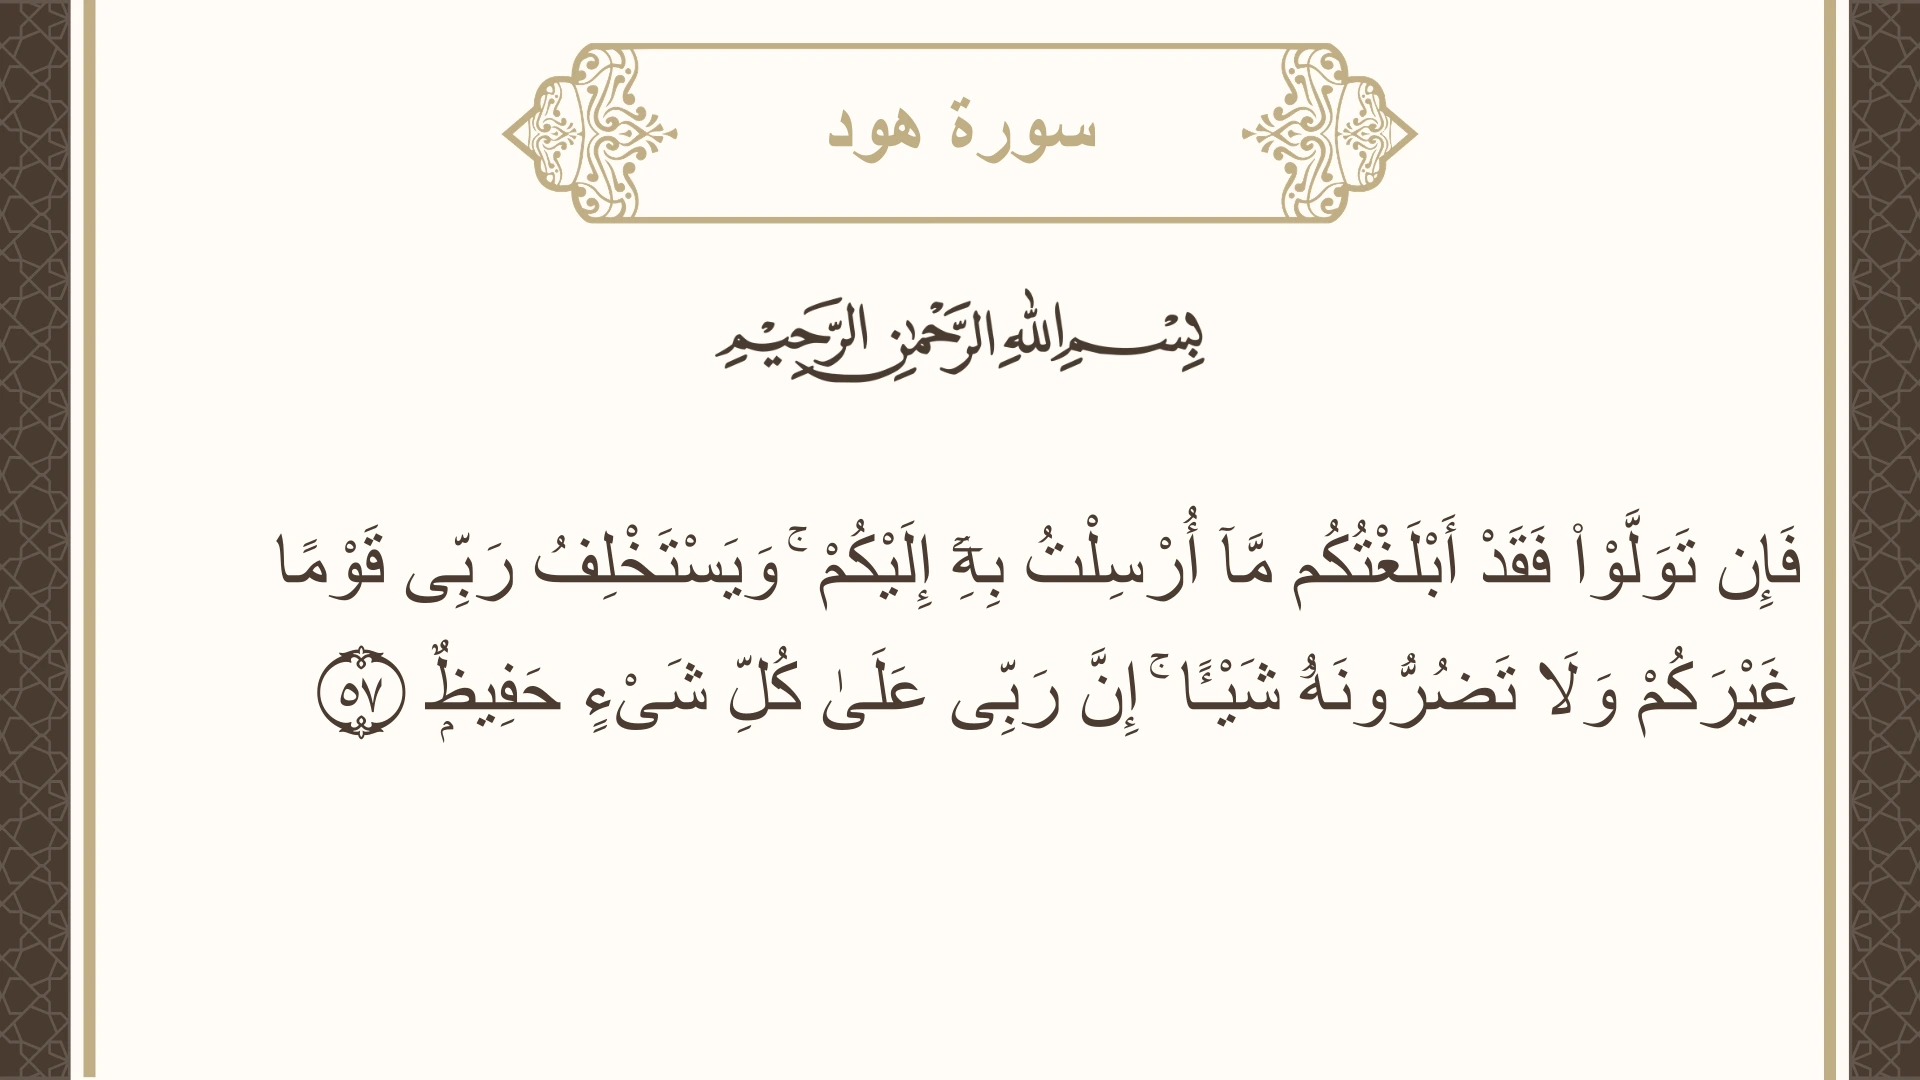 سورة هود
بِسْمِ اللهِ الرَّحْمٰنِ الرَّحِيْمِ
فَإِن تَوَلَّوْا۟ فَقَدْ أَبْلَغْتُكُم مَّآ أُرْسِلْتُ بِهِۦٓ إِلَيْكُمْ ۚ وَيَسْتَخْلِفُ رَبِّى قَوْمًا
غَيْرَكُمْ وَلَا تَضُرُّونَهُۥ شَيْـًٔا ۚ إِنَّ رَبِّى عَلَىٰ كُلِّ شَىْءٍ حَفِيظٌۭ ٥٧